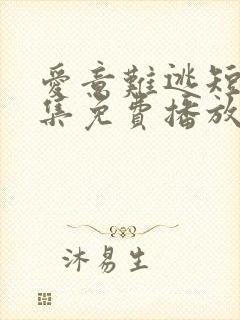 愛意難逃短
集免費播放
沐易生